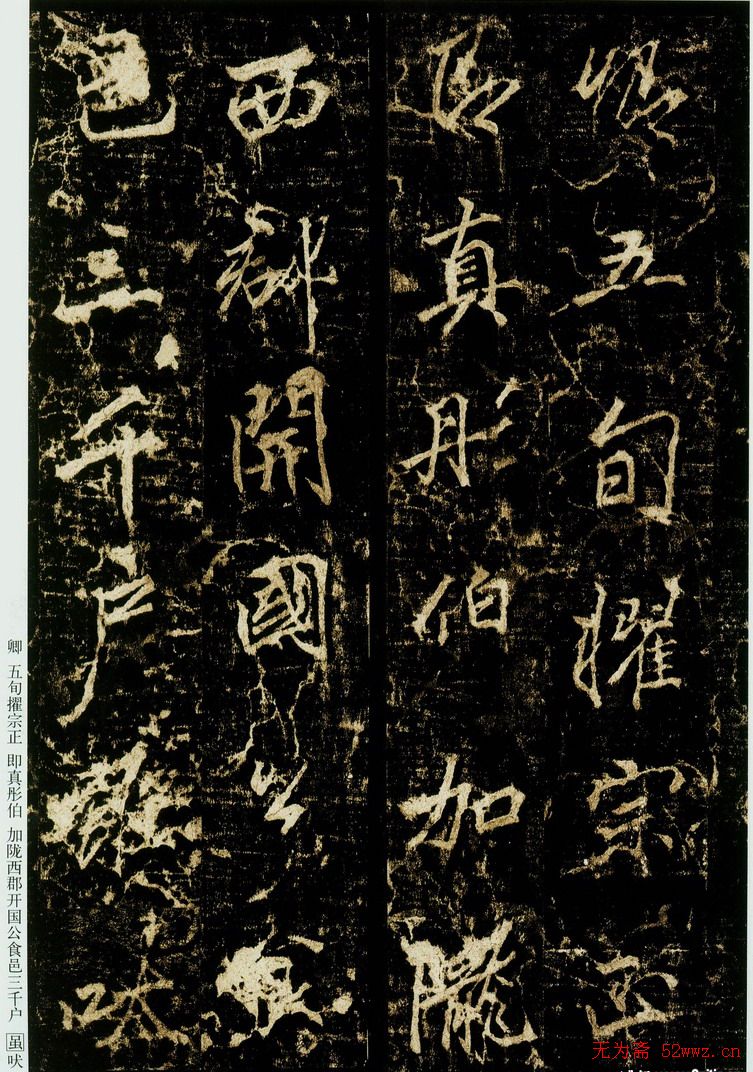 卿五旬擢宗正
即真彤伯加隴
西郡開國公食
邑三千户雖吠
卿 五旬擢宗正 即真彤伯 加陇西郡开国公食邑三千户 虽吠
无为斋 52wwz.cn